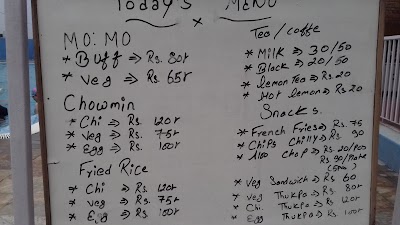 Today's Menu
MO: MO
* Buff ⇒ Rs. 80r
* Veg ⇒ Rs 65r
Chowmin
* Chi ⇒ Rs. 120r
* Veg ⇒ Rs. 75r
* Egg ⇒ Rs. 100r
Fried Rice
* Chi ⇒ Rs 120r
* veg ⇒ Rs. 75r
* Egg ⇒ Rs. 100r
Tea / coffe
* Milk ⇒ 30/50
* Black ⇒ 20/50
* lemon Tea ⇒ Rs. 20
* Hot lemon ⇒ Rs 20
Snacks.
* French Fries ⇒ Rs. 75
* Chips Chilly ⇒ Rs 90
* Aloo Chop ⇒ Rs 20/Pcs
Rs 90/Plate
* Veg Sandwich ⇒ Rs 60
* Veg Thukpa ⇒ Rs. 80r
* Chi. Thukpa ⇒ Rs 120r
* Egg Thukpa ⇒ Rs 100r